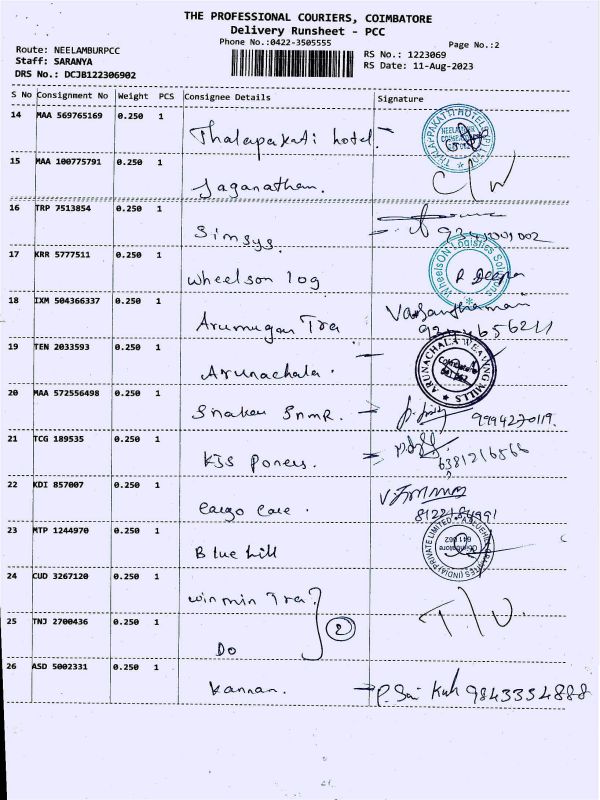 THE PROFESSIONAL COURIERS, COIMBATORE
Delivery Runsheet - PCC
Phone No.:0422-3505555
Page No.:2
Route: NEELAMBURPCC
Staff: SARANYA
DRS No.: DCJB122306902
RS No.: 1223069
RS Date: 11-Aug-2023
S No Consignment No Weight PCS Consignee Details Signature
14 MAA 569765169 0.250 1
Thalapakati hotel.
15 MAA 100775791 0.250 1
Jaganathan.
C/W
16 TRP 7513854 0.250 1
Simsys.
17 KRR 5777511 0.250 1
Wheelson log
WheelsON Logistics Solutions
R Deepa
18 IXM 504366337 0.250 1
Arumugan Tra
19 TEN 2033593 0.250 1
Arunachala.
ARUNACHALA WEAVING MILLS
20 MAA 572556498 0.250 1
9994230119.
21 TCG 189535 0.250 1
KJS Poners.
6381216566
22 KDI 857007 0.250 1
Cargo Care.
23 MTP 1244970 0.250 1
Blue hill
24 CUD 3267120 0.250 1
Winmin Tra
25 TNJ 2700436 0.250 1
Do
2
26 ASD 5002331 0.250 1
Kannan.
9843354888